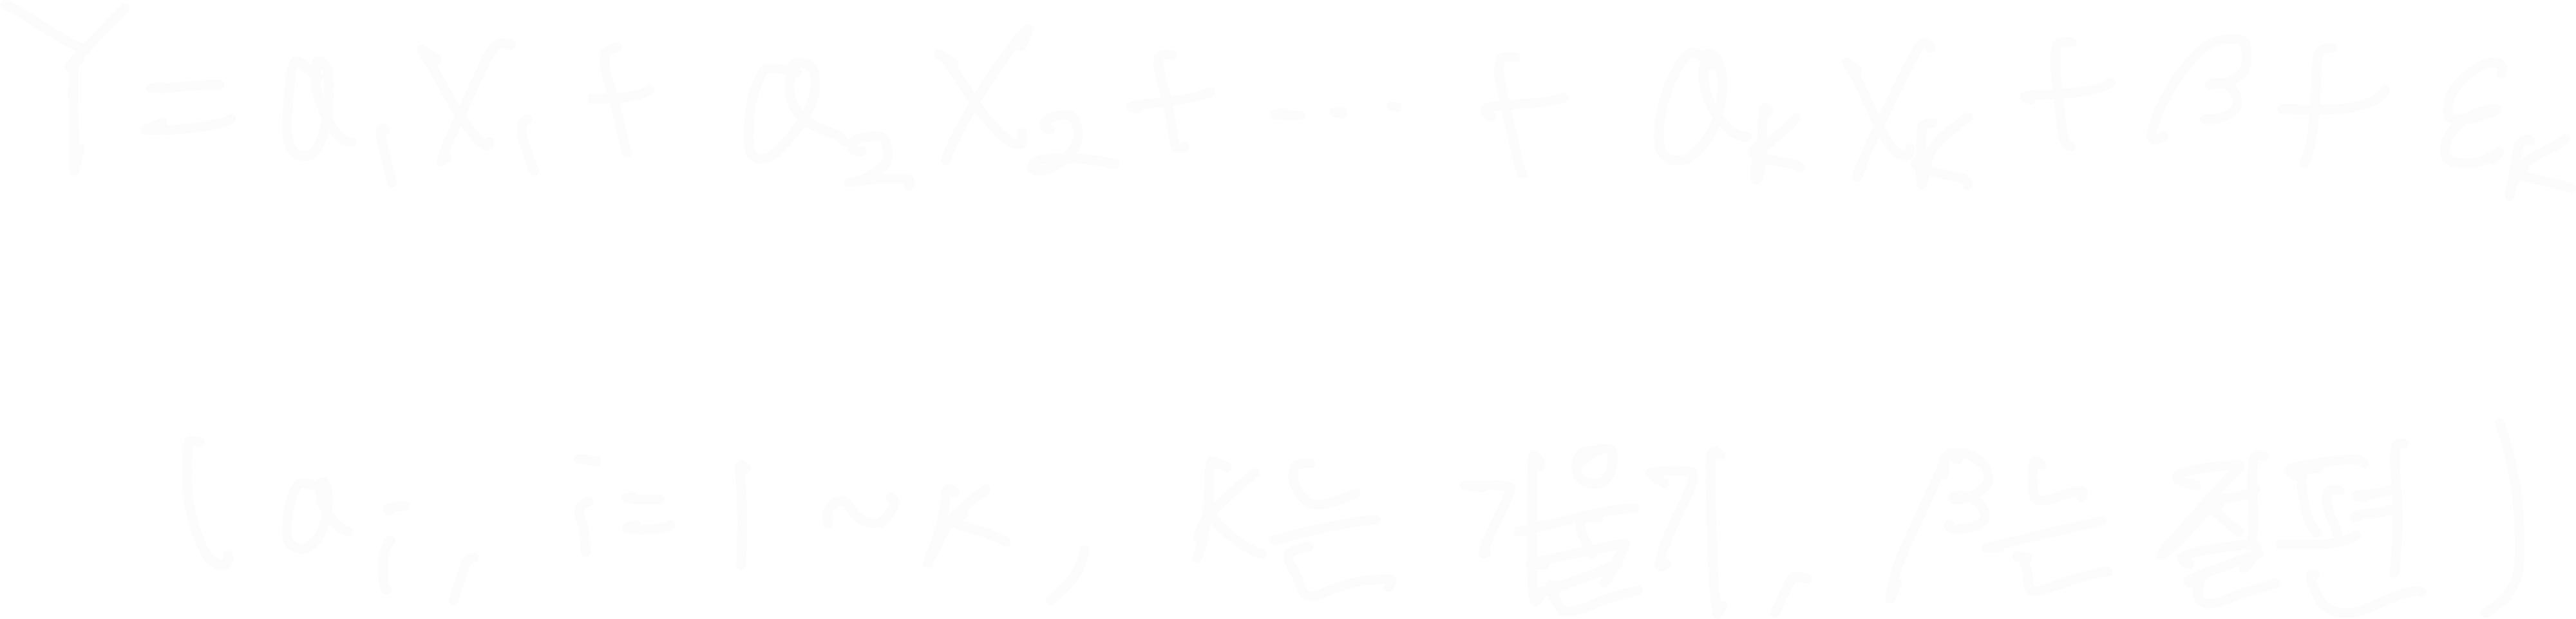 Y = a₁X₁ + a₂X₂ + ... + aₖXₖ + β + εₖ
(aᵢ, i=1~k, k는 기울기, β는 절편)